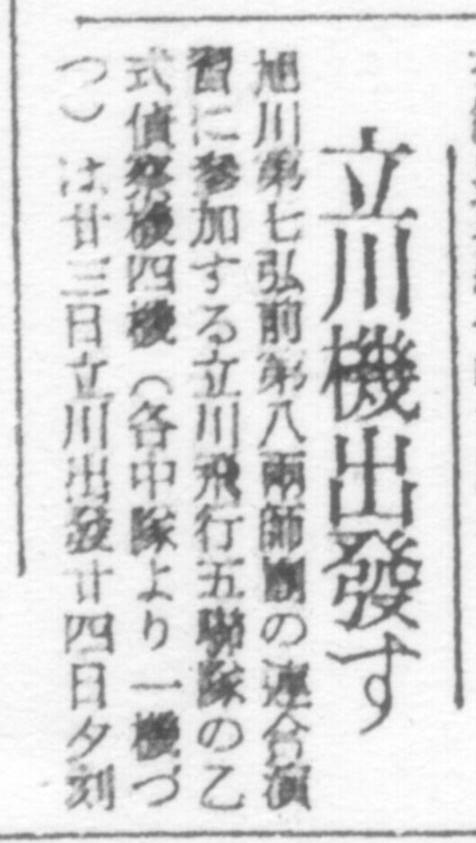 立川機出發す
旭川第七弘前第八兩師團の連合演
習に參加する立川飛行五聯隊の乙
式偵察機四機（各中隊より一機づ
つ）は廿三日立川出發廿四日夕刻